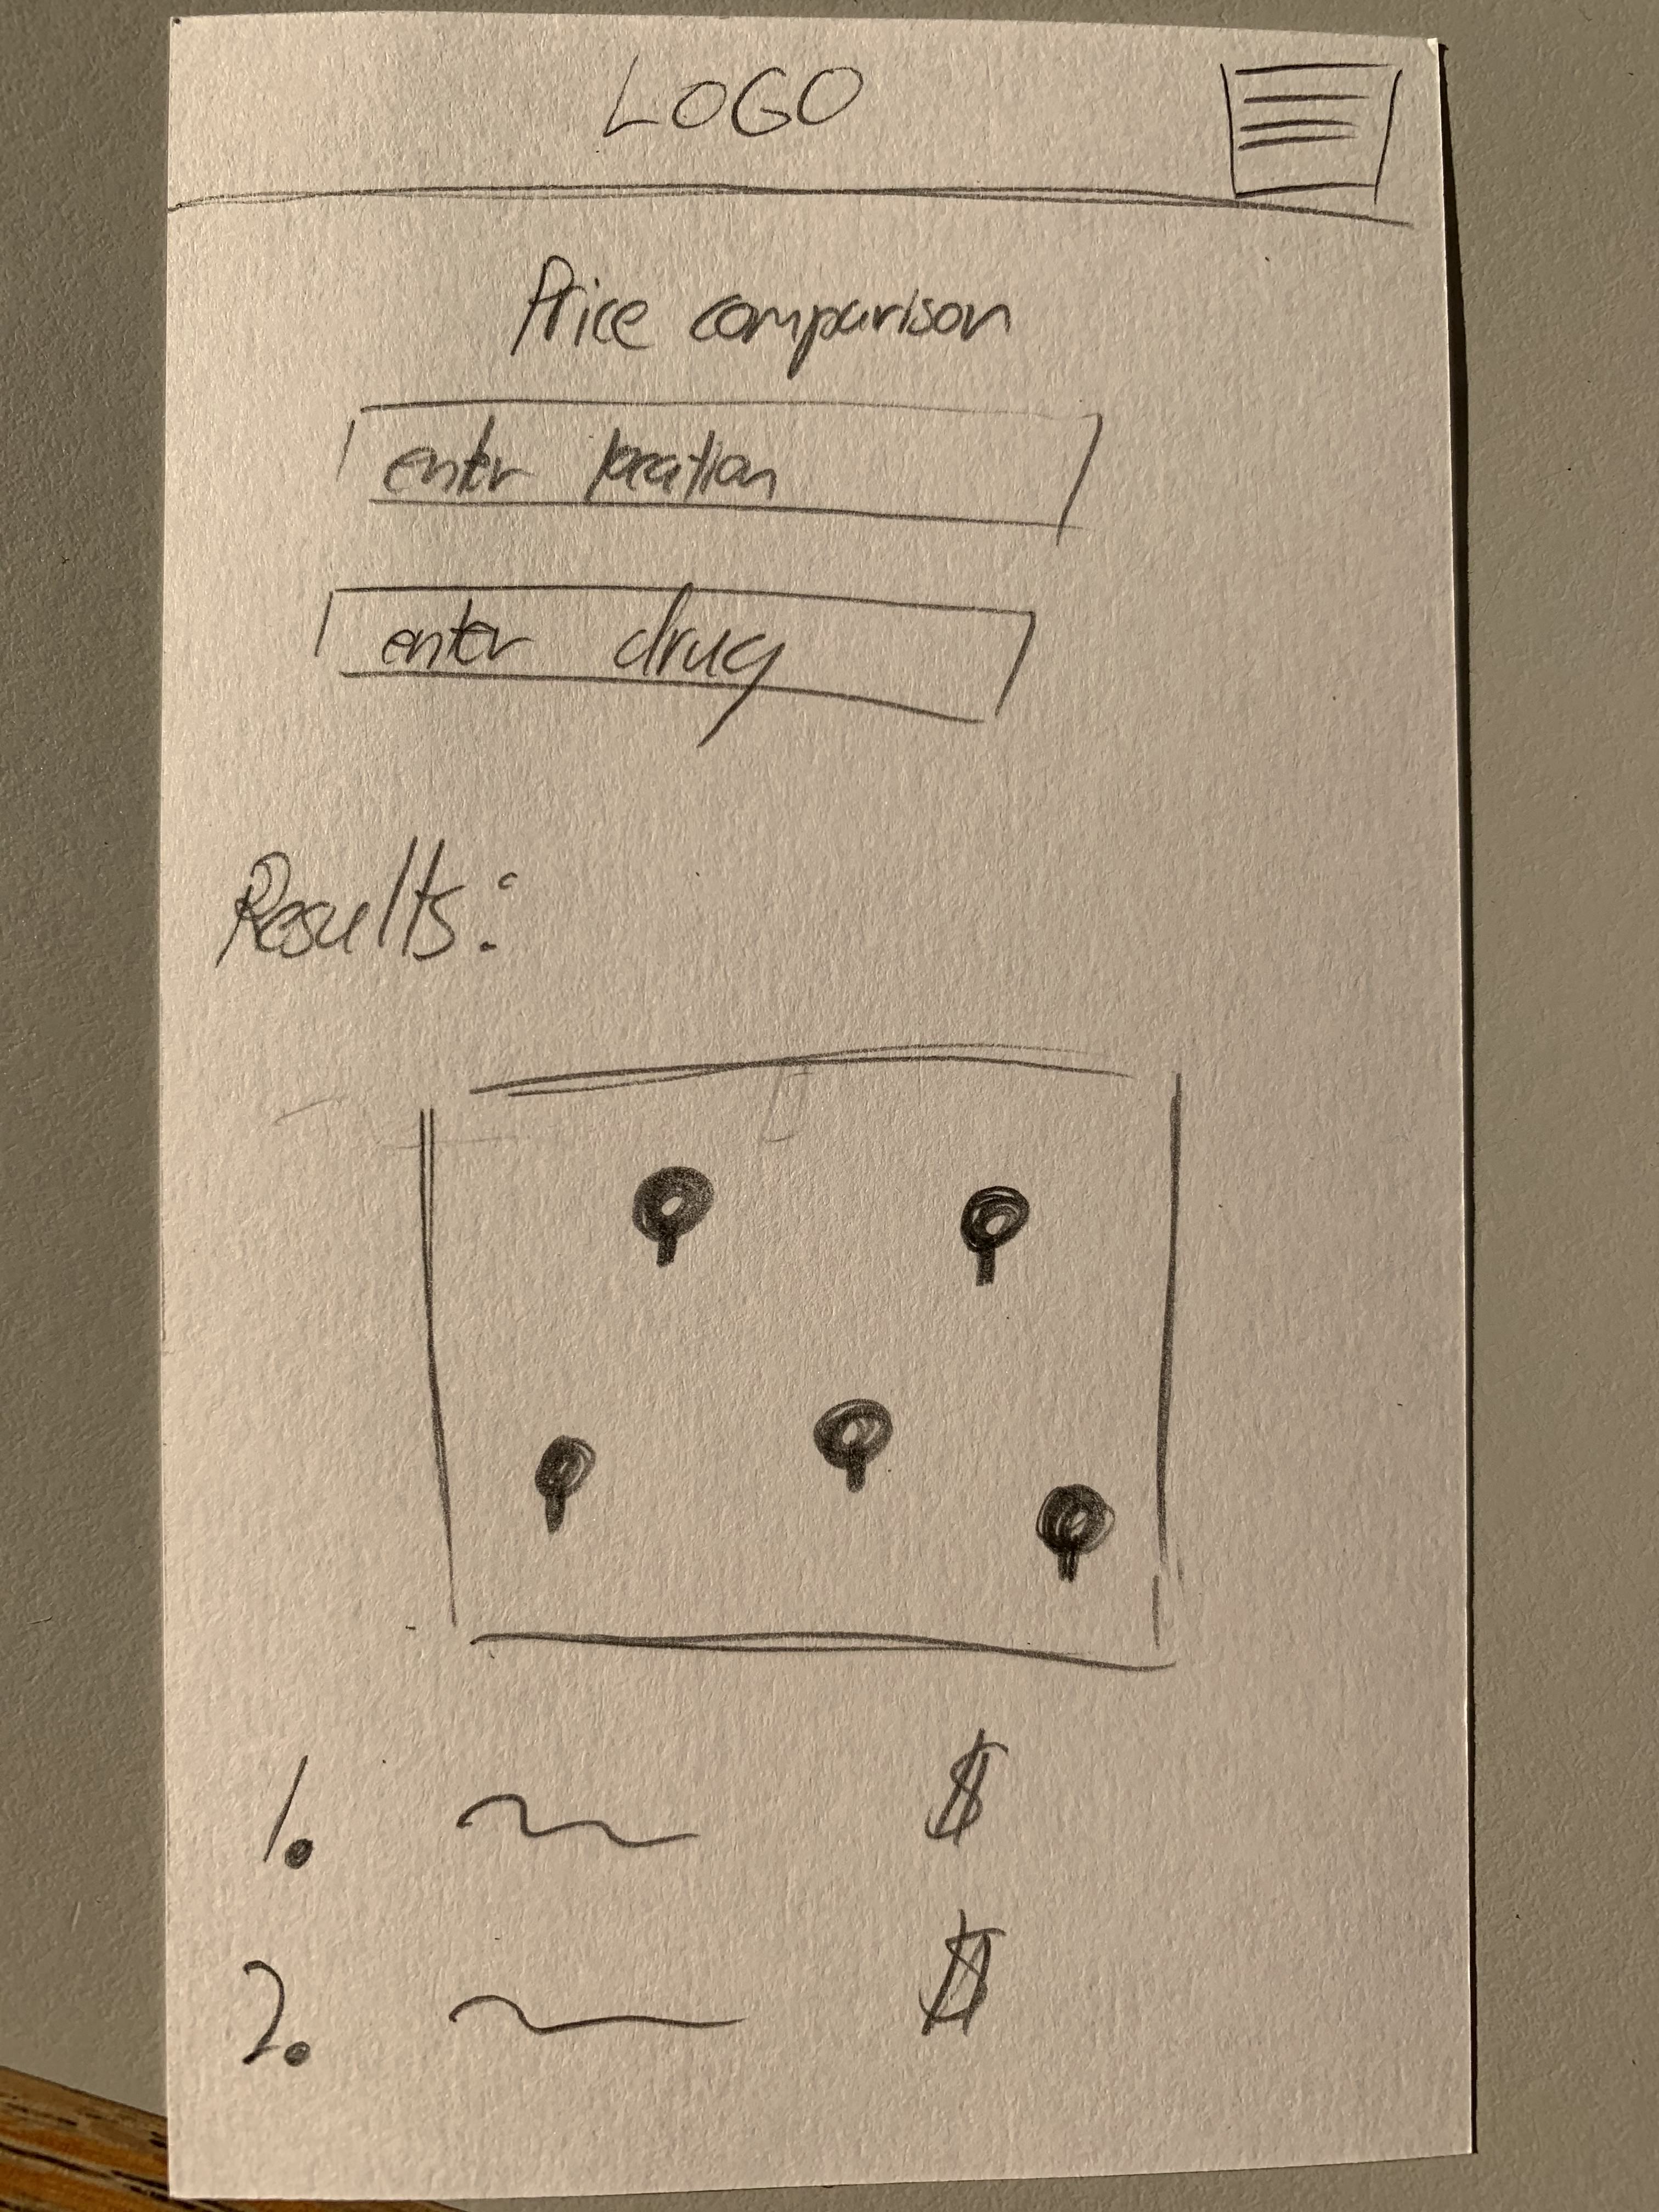 LOGO
Price comparison
enter location
enter drug
Results:
1. $
2. $